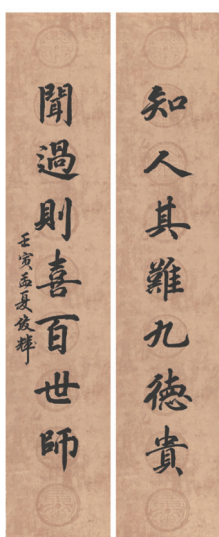 知人其難九德貴
聞過則喜百世師
壬寅孟夏俊輝